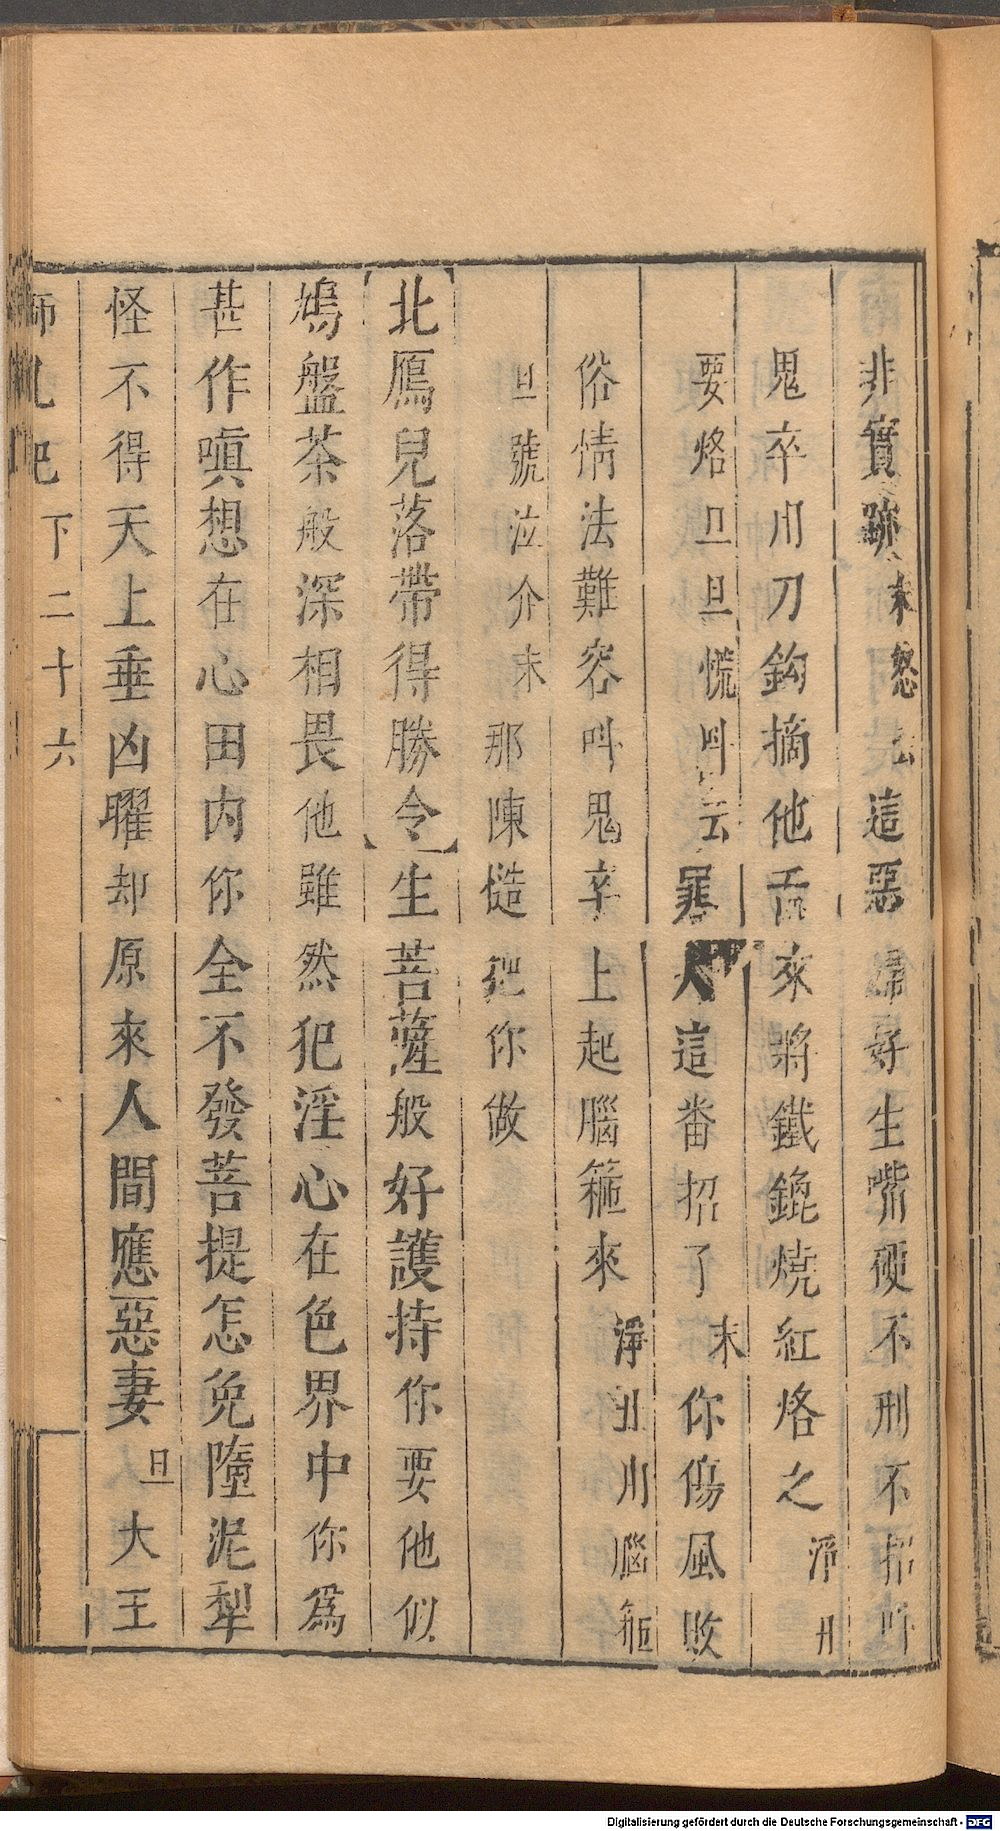 非實跡末怒云這惡婦好生嘴硬不刑不招叫
鬼卒用刀鈎摘他舌來將鐵鎗燒紅烙之淨丑
要烙旦旦慌叫云罪人這番招了末你傷風敗
俗情法難容叫鬼卒上起腦箍來淨丑用腦箍
旦號泣介末那陳慥把你做
【北鴈兒落帶得勝令】生菩薩般好護持你要他似
鳩盤茶般深相畏他雖然犯淫心在色界中你爲
甚作嗔想在心田内你全不發菩提怎免墮泥犁
怪不得天上垂凶曜却原來人間應惡妻旦大王
師吼記 下二十六
Digitalisierung gefördert durch die Deutsche Forschungsgemeinschaft - DFG